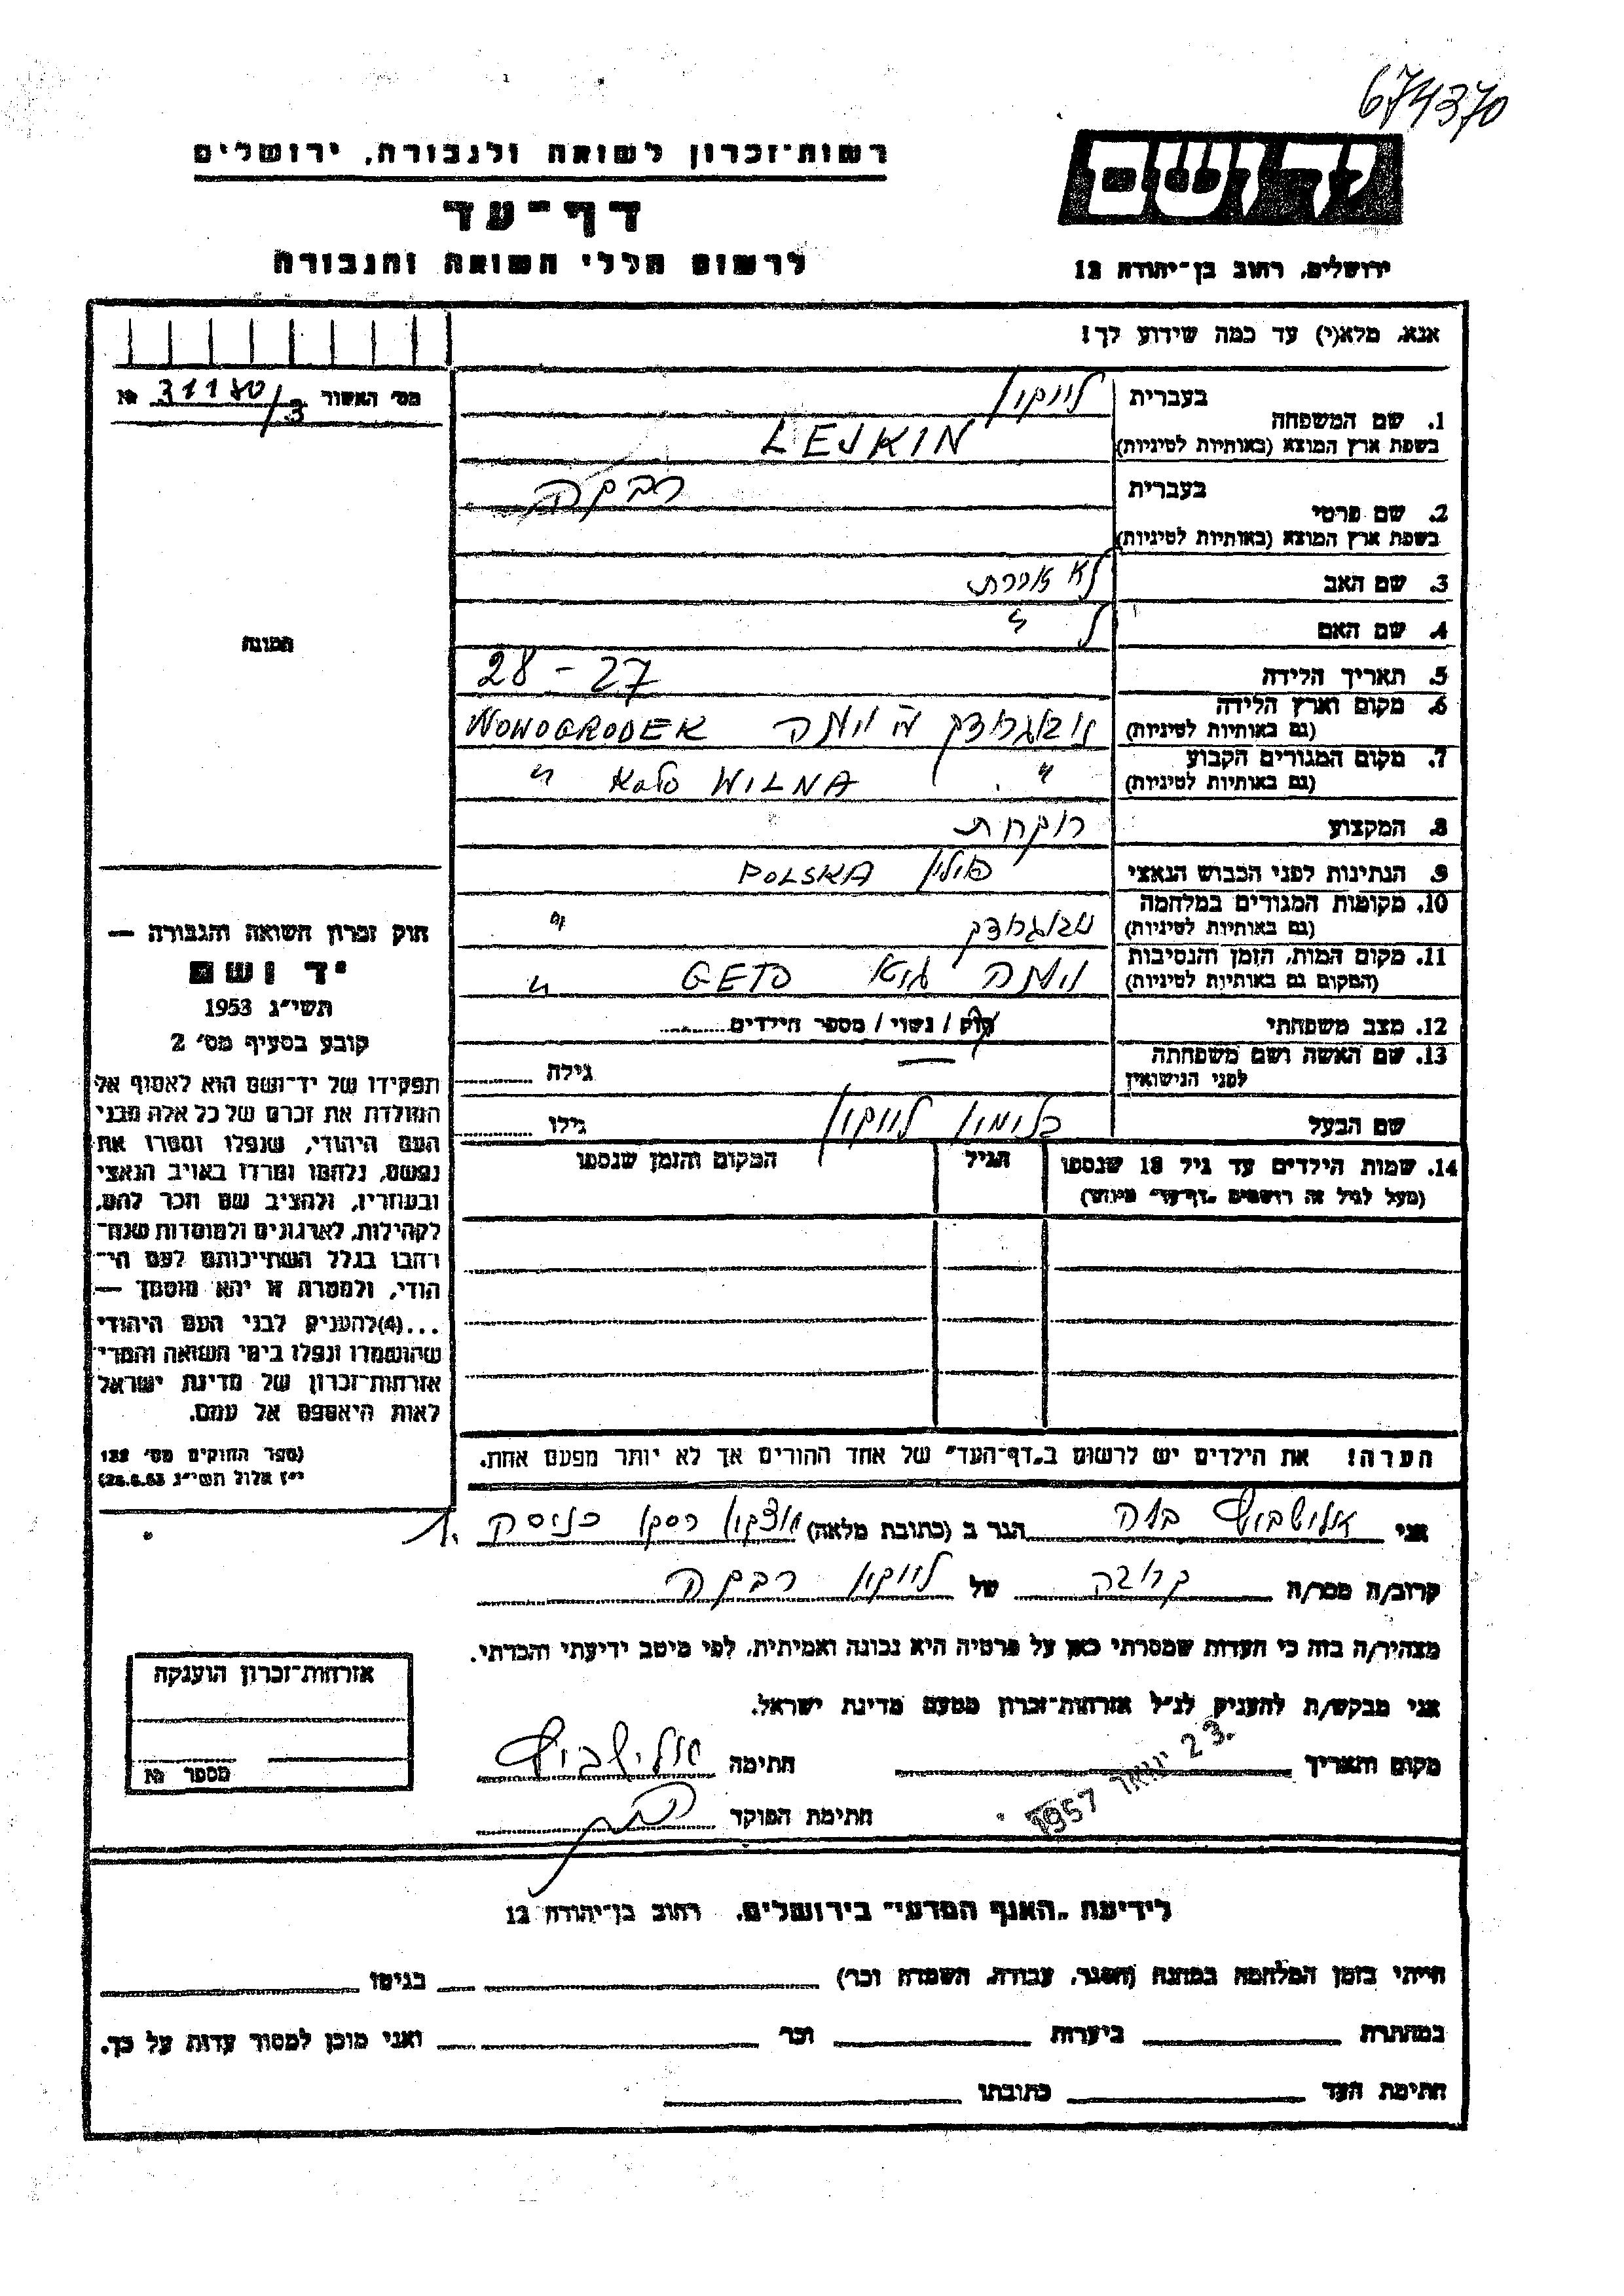 674370
רשות־זכרון לשואה ולגבורה, ירושלים
יד ושם
דף־עד
לרשום חללי השואה והגבורה
ירושלים, רחוב בן־יהודה 12
אנא, מלא(י) עד כמה שידוע לך!
מס' האשור 31180/3 №
בעברית
לייקין
1. שם המשפחה
בשפת ארץ המוצא (באותיות לטיניות)
LEJKIN
בעברית
רבקה
2. שם פרטי
בשפת ארץ המוצא (באותיות לטיניות)
3. שם האב
לא זוכרת
4. שם האם ל "
התמונה
5. תאריך הלידה 28 - 27
6. מקום וארץ הלידה
(גם באותיות לטיניות)
נובוגרודק וילנה NOWOGRODEK
7. מקום המגורים הקבוע
(גם באותיות לטיניות)
" KOŁO WILNA "
8. המקצוע רוקחת
9. הנתינות לפני הכבוש הנאצי פולין POLSKA
10. מקומות המגורים במלחמה
(גם באותיות לטיניות)
נובוגרודק "
11. מקום המות, הזמן והנסיבות
(המקום גם באותיות לטיניות)
וילנה גיטא GETO "
12. מצב משפחתי
רוק / נשוי / מספר הילדים
13. שם האשה ושם משפחתה
לפני הנישואין
— גילה
שם הבעל לייקין גילו
14. שמות הילדים עד גיל 18 שנספו
(מעל לגיל זה רושמים "דף־עד" מיוחד)
הגיל
המקום והזמן שנספו
חוק זכרון השואה והגבורה —
יד ושם
תשי"ג 1953
קובע בסעיף מס' 2
תפקידו של יד־ושם הוא לאסוף אל
המולדת את זכרם של כל אלה מבני
העם היהודי, שנפלו ומסרו את
נפשם, נלחמו ומרדו באויב הנאצי
ובעוזריו, ולהציב שם וזכר להם,
לקהילות, לארגונים ולמוסדות שנח־
רבו בגלל השתייכותם לעם הי־
הודי, ולמטרה זו יהא מוסמך —
...(4)להעניק לבני העם היהודי
שהושמדו ונפלו בימי השואה והמרי־
אזרחות־זכרון של מדינת ישראל
לאות היאספם אל עמם.
(ספר החוקים מס' 132
י"ז אלול תשי"ג 28.8.53)
הערה! את הילדים יש לרשום ב"דף־העד" של אחד ההורים אך לא יותר מפעם אחת.
אני הגר ב (כתובת מלאה)
קרוב/ה מכר/ה קרובה של לייקין רבקה
מצהיר/ה בזה כי העדות שמסרתי כאן על פרטיה היא נכונה ואמיתית, לפי מיטב ידיעתי והכרתי.
אני מבקש/ת להעניק לנ"ל אזרחות־זכרון מטעם מדינת ישראל.
מקום ותאריך 23 ינואר 1957 חתימה
חתימת הפוקד
אזרחות־זכרון הוענקה
מספר №
לידיעת "האגף המדעי" בירושלים, רחוב בן־יהודה 12
הייתי בזמן המלחמה במחנה (הסגר, עבודה, השמדה וכו') בגיטו
במחתרת ביערות וכו' ואני מוכן למסור עדות על כך.
חתימת העד כתובתו